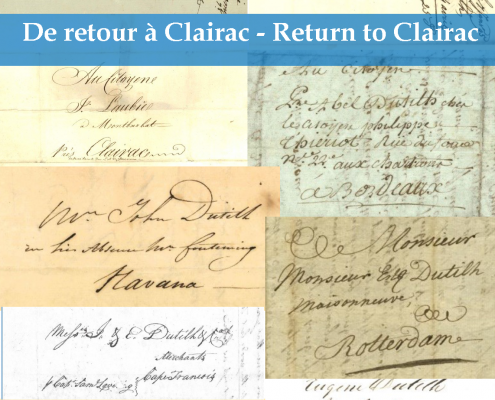 De retour à Clairac - Return to Clairac
Au Citoyene
St Laubies
à Montbuchet
près Clairac
Au Citoyen
Abel Dutilh chez
le citoyen philippe
Thieriot Rue du
No. 22 aux chartrons
a Bordeaux
Mr. John Dutilh
in his Absence Mr.
Havana
A Monsieur
Monsieur Dutilh
Maisonneuve
Rotterdam
Messrs. J. & E. Dutilh &
Merchants
Cape Francois
p Capt. Saml.
Eugène Dutilh